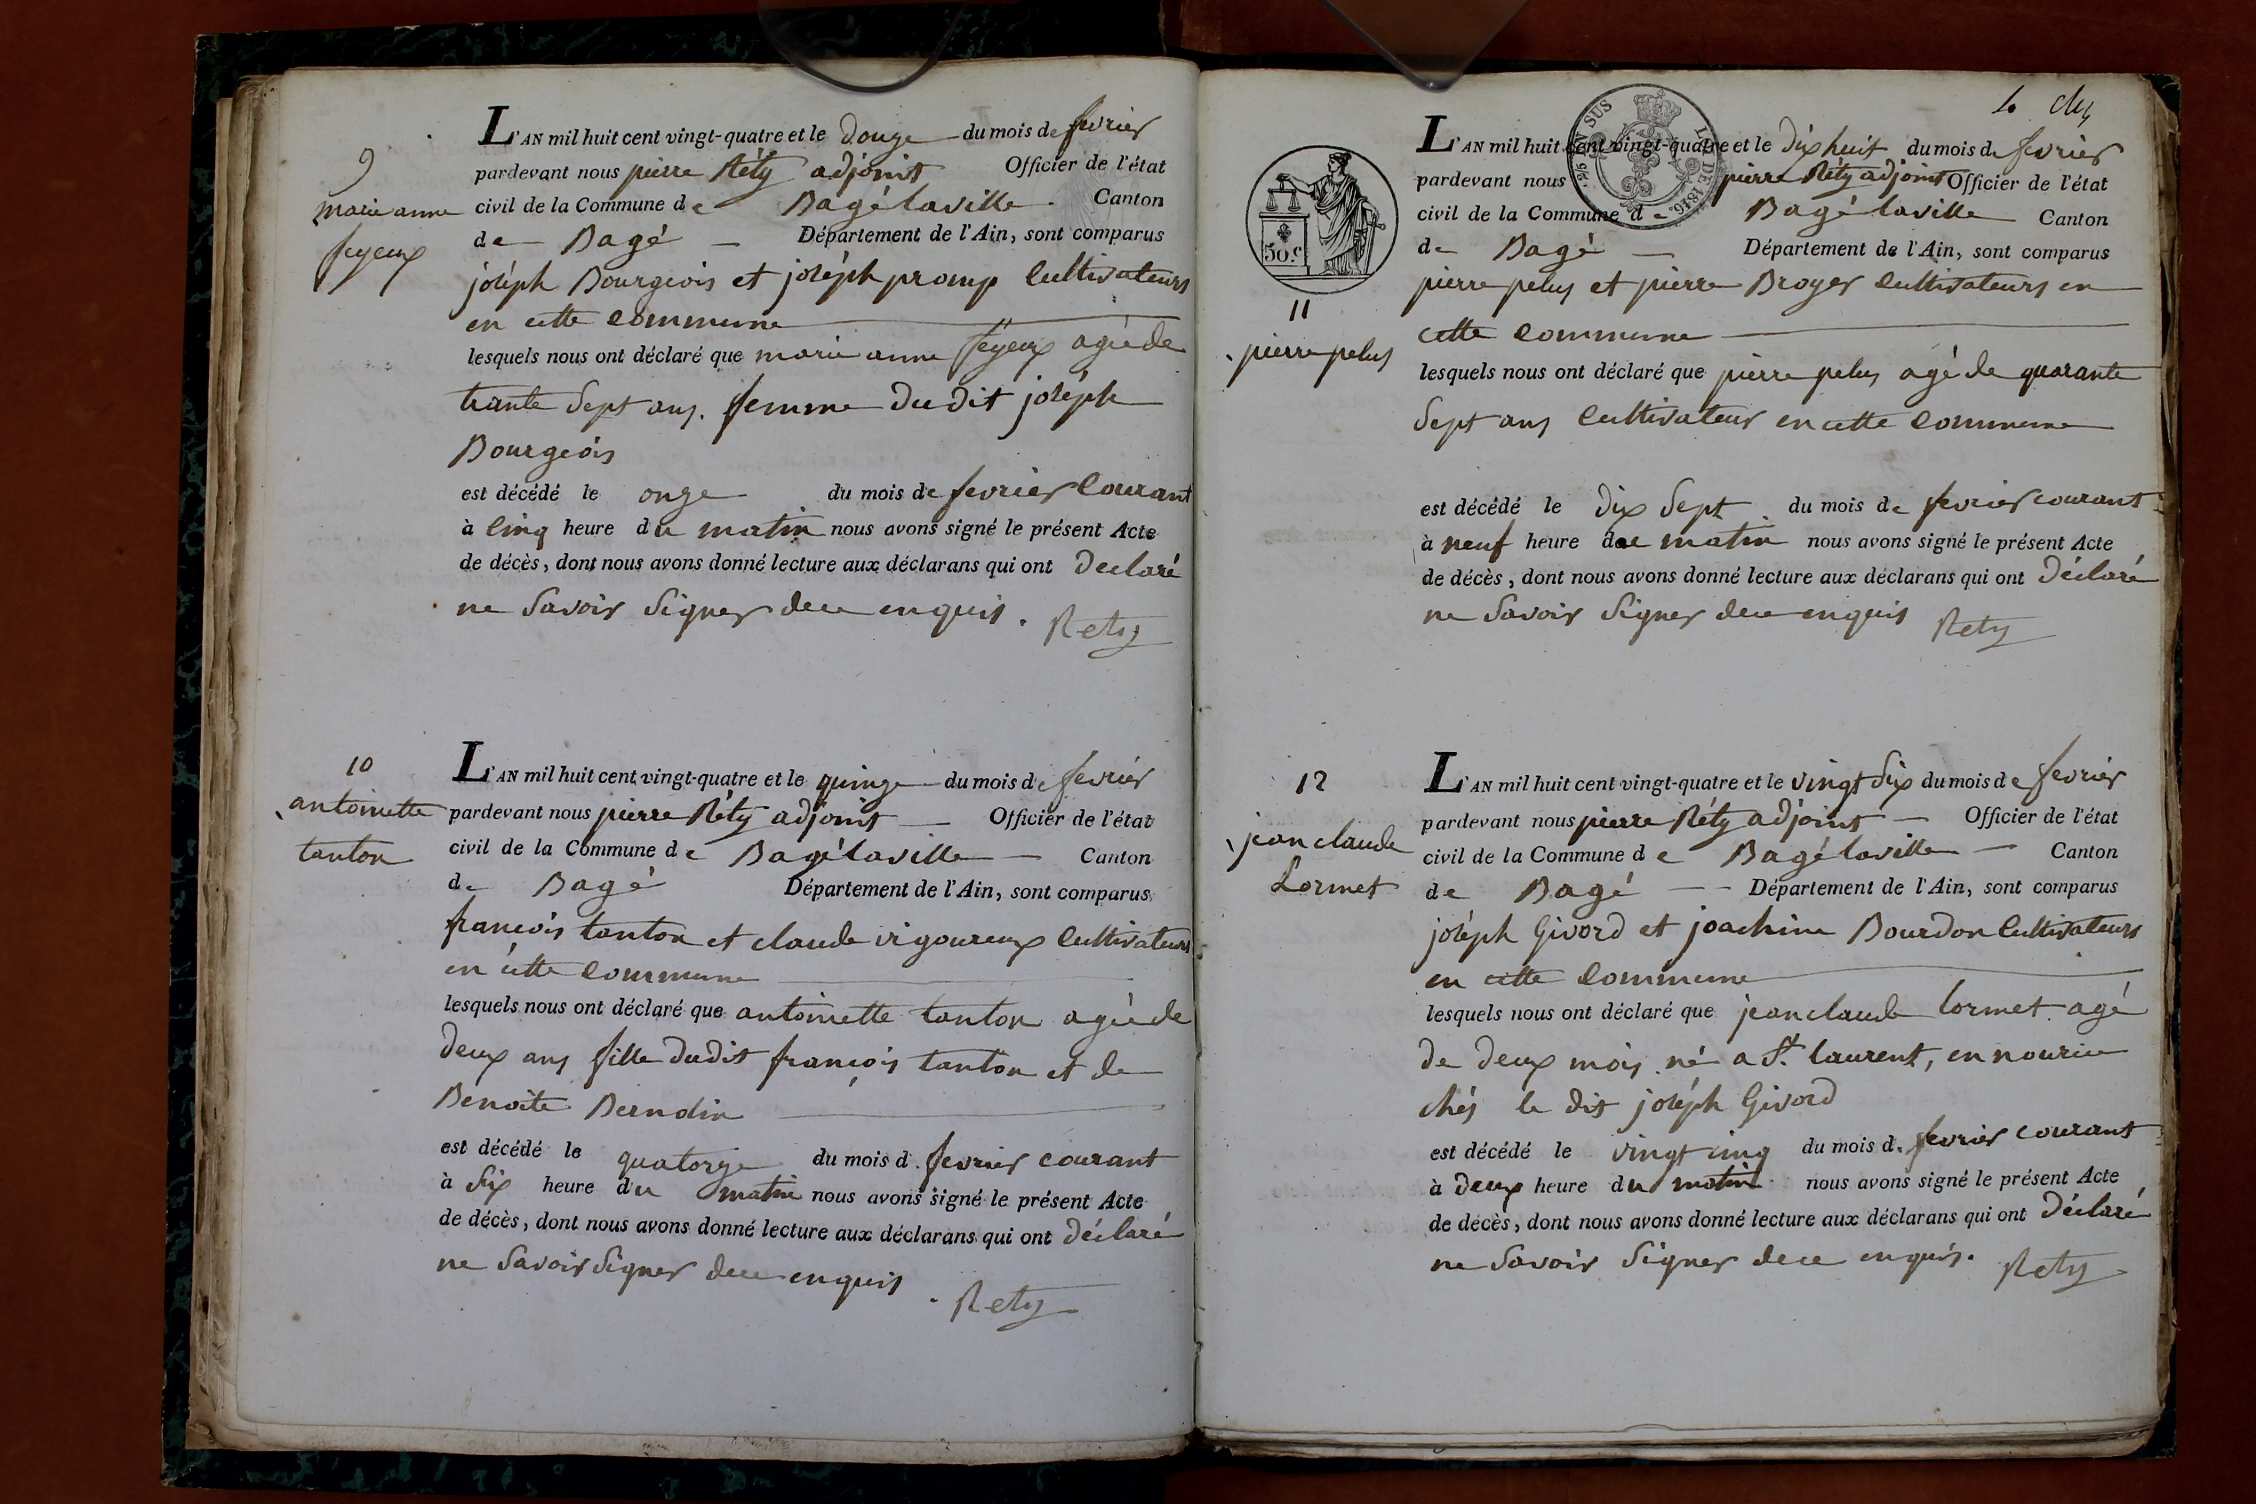 9
marie anne
feyeux
L'AN mil huit cent vingt-quatre et le douze du mois de fevrier
pardevant nous pierre Réty adjoint Officier de l'état
civil de la Commune de Bagé laville Canton
de Bagé Département de l'Ain, sont comparus
joséph Bourgeois et joséph promp cultivateurs
en cette commune
lesquels nous ont déclaré que marie anne feyeux agée de
trante sept ans. femme du dit joséph
Bourgeois
est décédé le onze du mois de fevrier courant
à cinq heure du matin nous avons signé le présent Acte
de décès, dont nous avons donné lecture aux déclarans qui ont déclaré
ne savoir signer de ce enquis.
Rety
10
antoinette
tanton
L'AN mil huit cent vingt-quatre et le quinze du mois de fevrier
pardevant nous pierre Réty adjoint Officier de l'état
civil de la Commune de Bagé laville Canton
de Bagé Département de l'Ain, sont comparus
francois tanton et claude vigoureux cultivateurs
en cette commune
lesquels nous ont déclaré que antoinette tanton agée de
deux ans fille dudit francois tanton et de
Benoite Berndin
est décédé le quatorze du mois d fevrier courant
à six heure du matin nous avons signé le présent Acte
de décès, dont nous avons donné lecture aux déclarans qui ont déclaré
ne savoir signer de ce enquis
Rety
EN SUS
L. DE 1816.
50.c
L'AN mil huit cent vingt-quatre et le dix huit du mois de fevrier
pardevant nous pierre Réty adjoint Officier de l'état
civil de la Commune de Bagé laville Canton
de Bagé Département de l'Ain, sont comparus
11
pierre pelus
pierre pelus et pierre Broyer cultivateurs en
cette commune
lesquels nous ont déclaré que pierre pelus agé de quarante
sept ans cultivateur en cette commune
est décédé le dix sept du mois de fevrier courant
à neuf heure de matin nous avons signé le présent Acte
de décès, dont nous avons donné lecture aux déclarans qui ont déclaré
ne savoir signer de ce enquis
Rety
12
jean claude
Lormet
L'AN mil huit cent vingt-quatre et le vingt six du mois de fevrier
pardevant nous pierre Réty adjoint Officier de l'état
civil de la Commune de Bagé laville Canton
de Bagé Département de l'Ain, sont comparus
joséph Givord et joachim Bourdon cultivateurs
en cette commune
lesquels nous ont déclaré que jean claude lormet agé
de deux mois né a St. laurent, en nourice
chés le dit joséph Givord
est décédé le vingt cinq du mois de fevrier courant
à deux heure du matin nous avons signé le présent Acte
de décès, dont nous avons donné lecture aux déclarans qui ont déclaré
ne savoir signer de ce enquis.
Rety